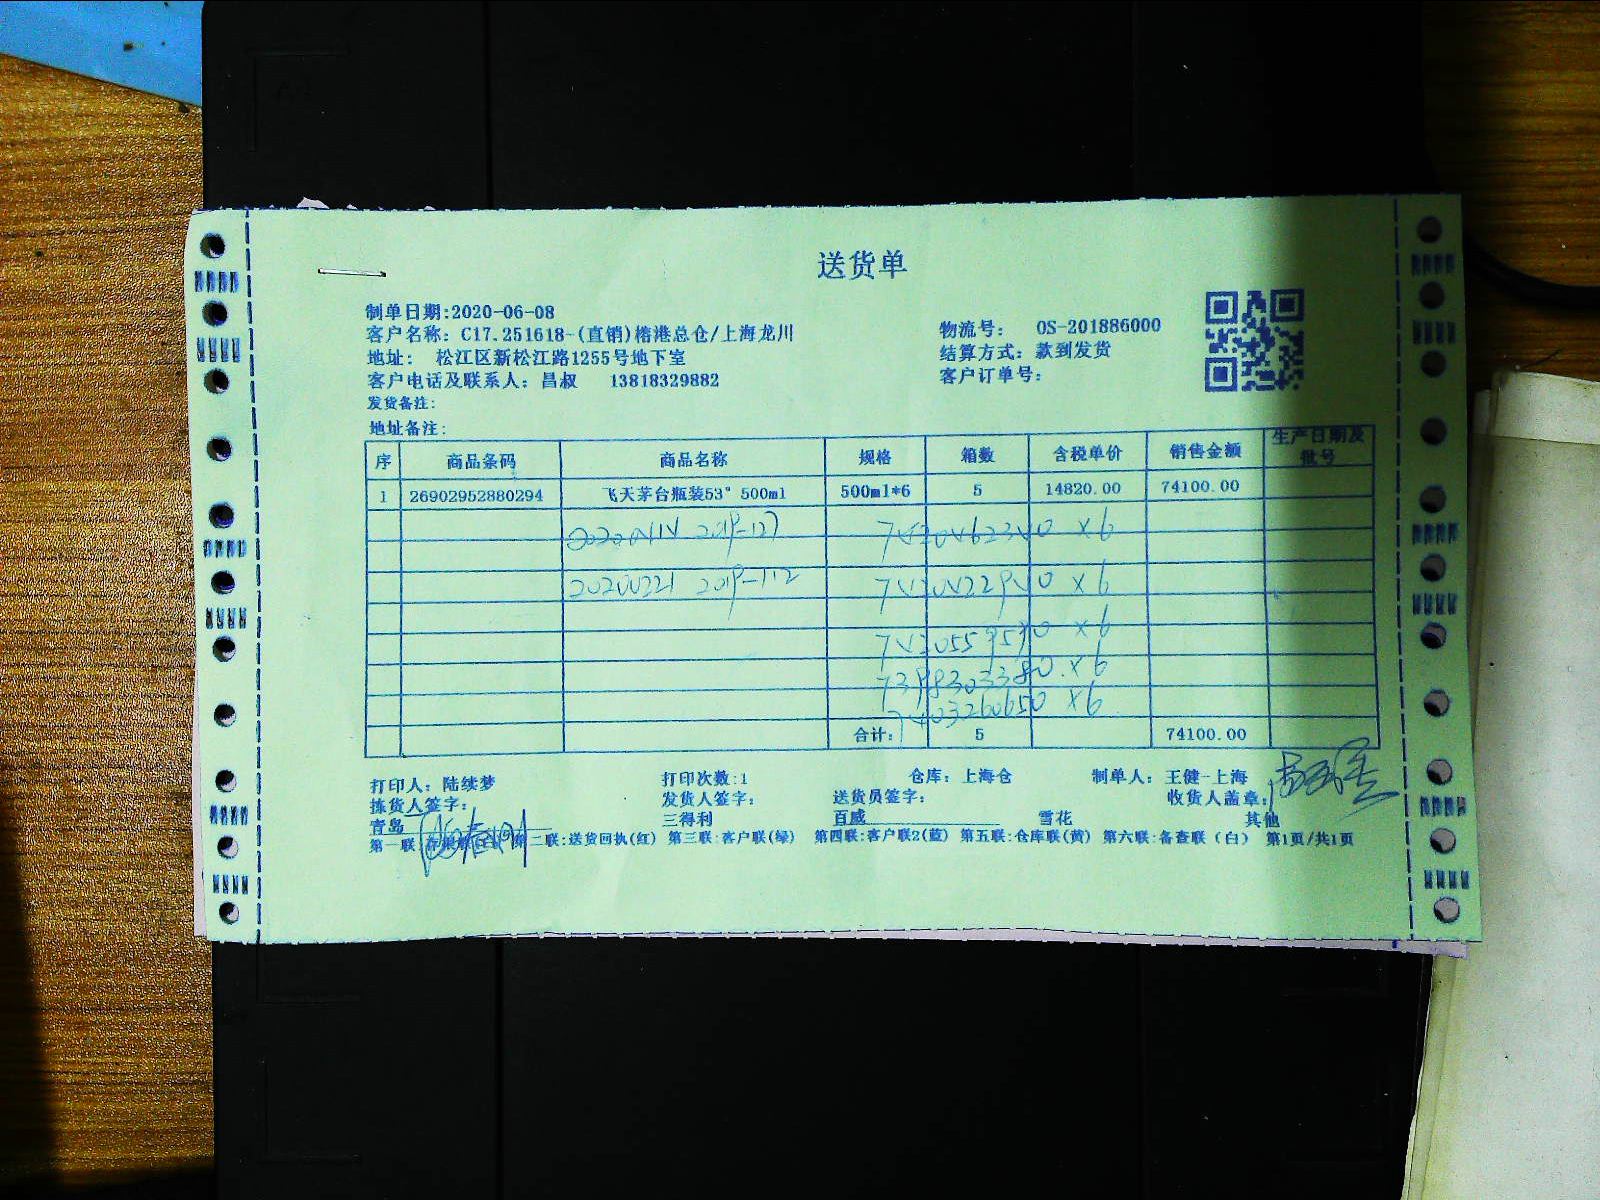 送货单
制单日期:2020-06-08
客户名称: C17.251618-(直销)榕港总仓/上海龙川
物流号: OS-201886000
地址: 松江区新松江路1255号地下室
结算方式: 款到发货
客户电话及联系人: 昌叔 13818329882
客户订单号:
发货备注:
地址备注:
序 商品条码 商品名称 规格 箱数 含税单价 销售金额 生产日期及批号
1 26902952880294 飞天茅台瓶装53° 500ml 500ml*6 5 14820.00 74100.00
2019-127 x6
2019-112 x6
x6
x6
x6
合计: 5 74100.00
打印人: 陆续梦 打印次数:1 仓库: 上海仓 制单人: 王健-上海
拣货人签字: 发货人签字: 送货员签字: 收货人盖章:
青岛 三得利 百威 雪花 其他
第一联: 二联:送货回执(红) 第三联:客户联(绿) 第四联:客户联2(蓝) 第五联:仓库联(黄) 第六联:备查联(白) 第1页/共1页